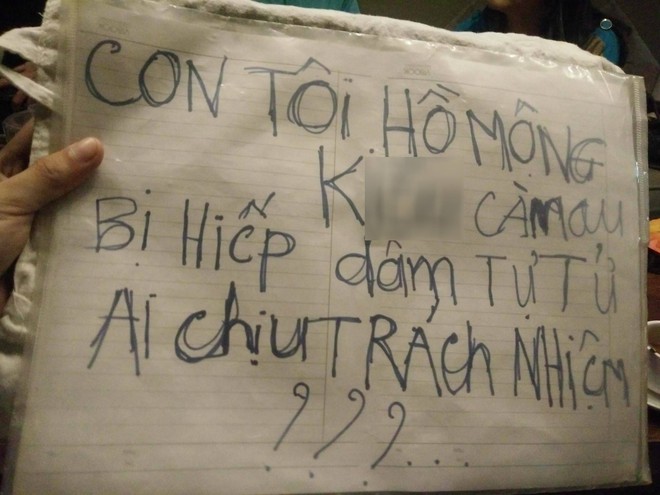 CON TÔI HỒ MỘNG
K CÀ MAU
BỊ HiẾP dâm TỰ TỬ
Ai chịu TRÁCh NHiỆm
???...